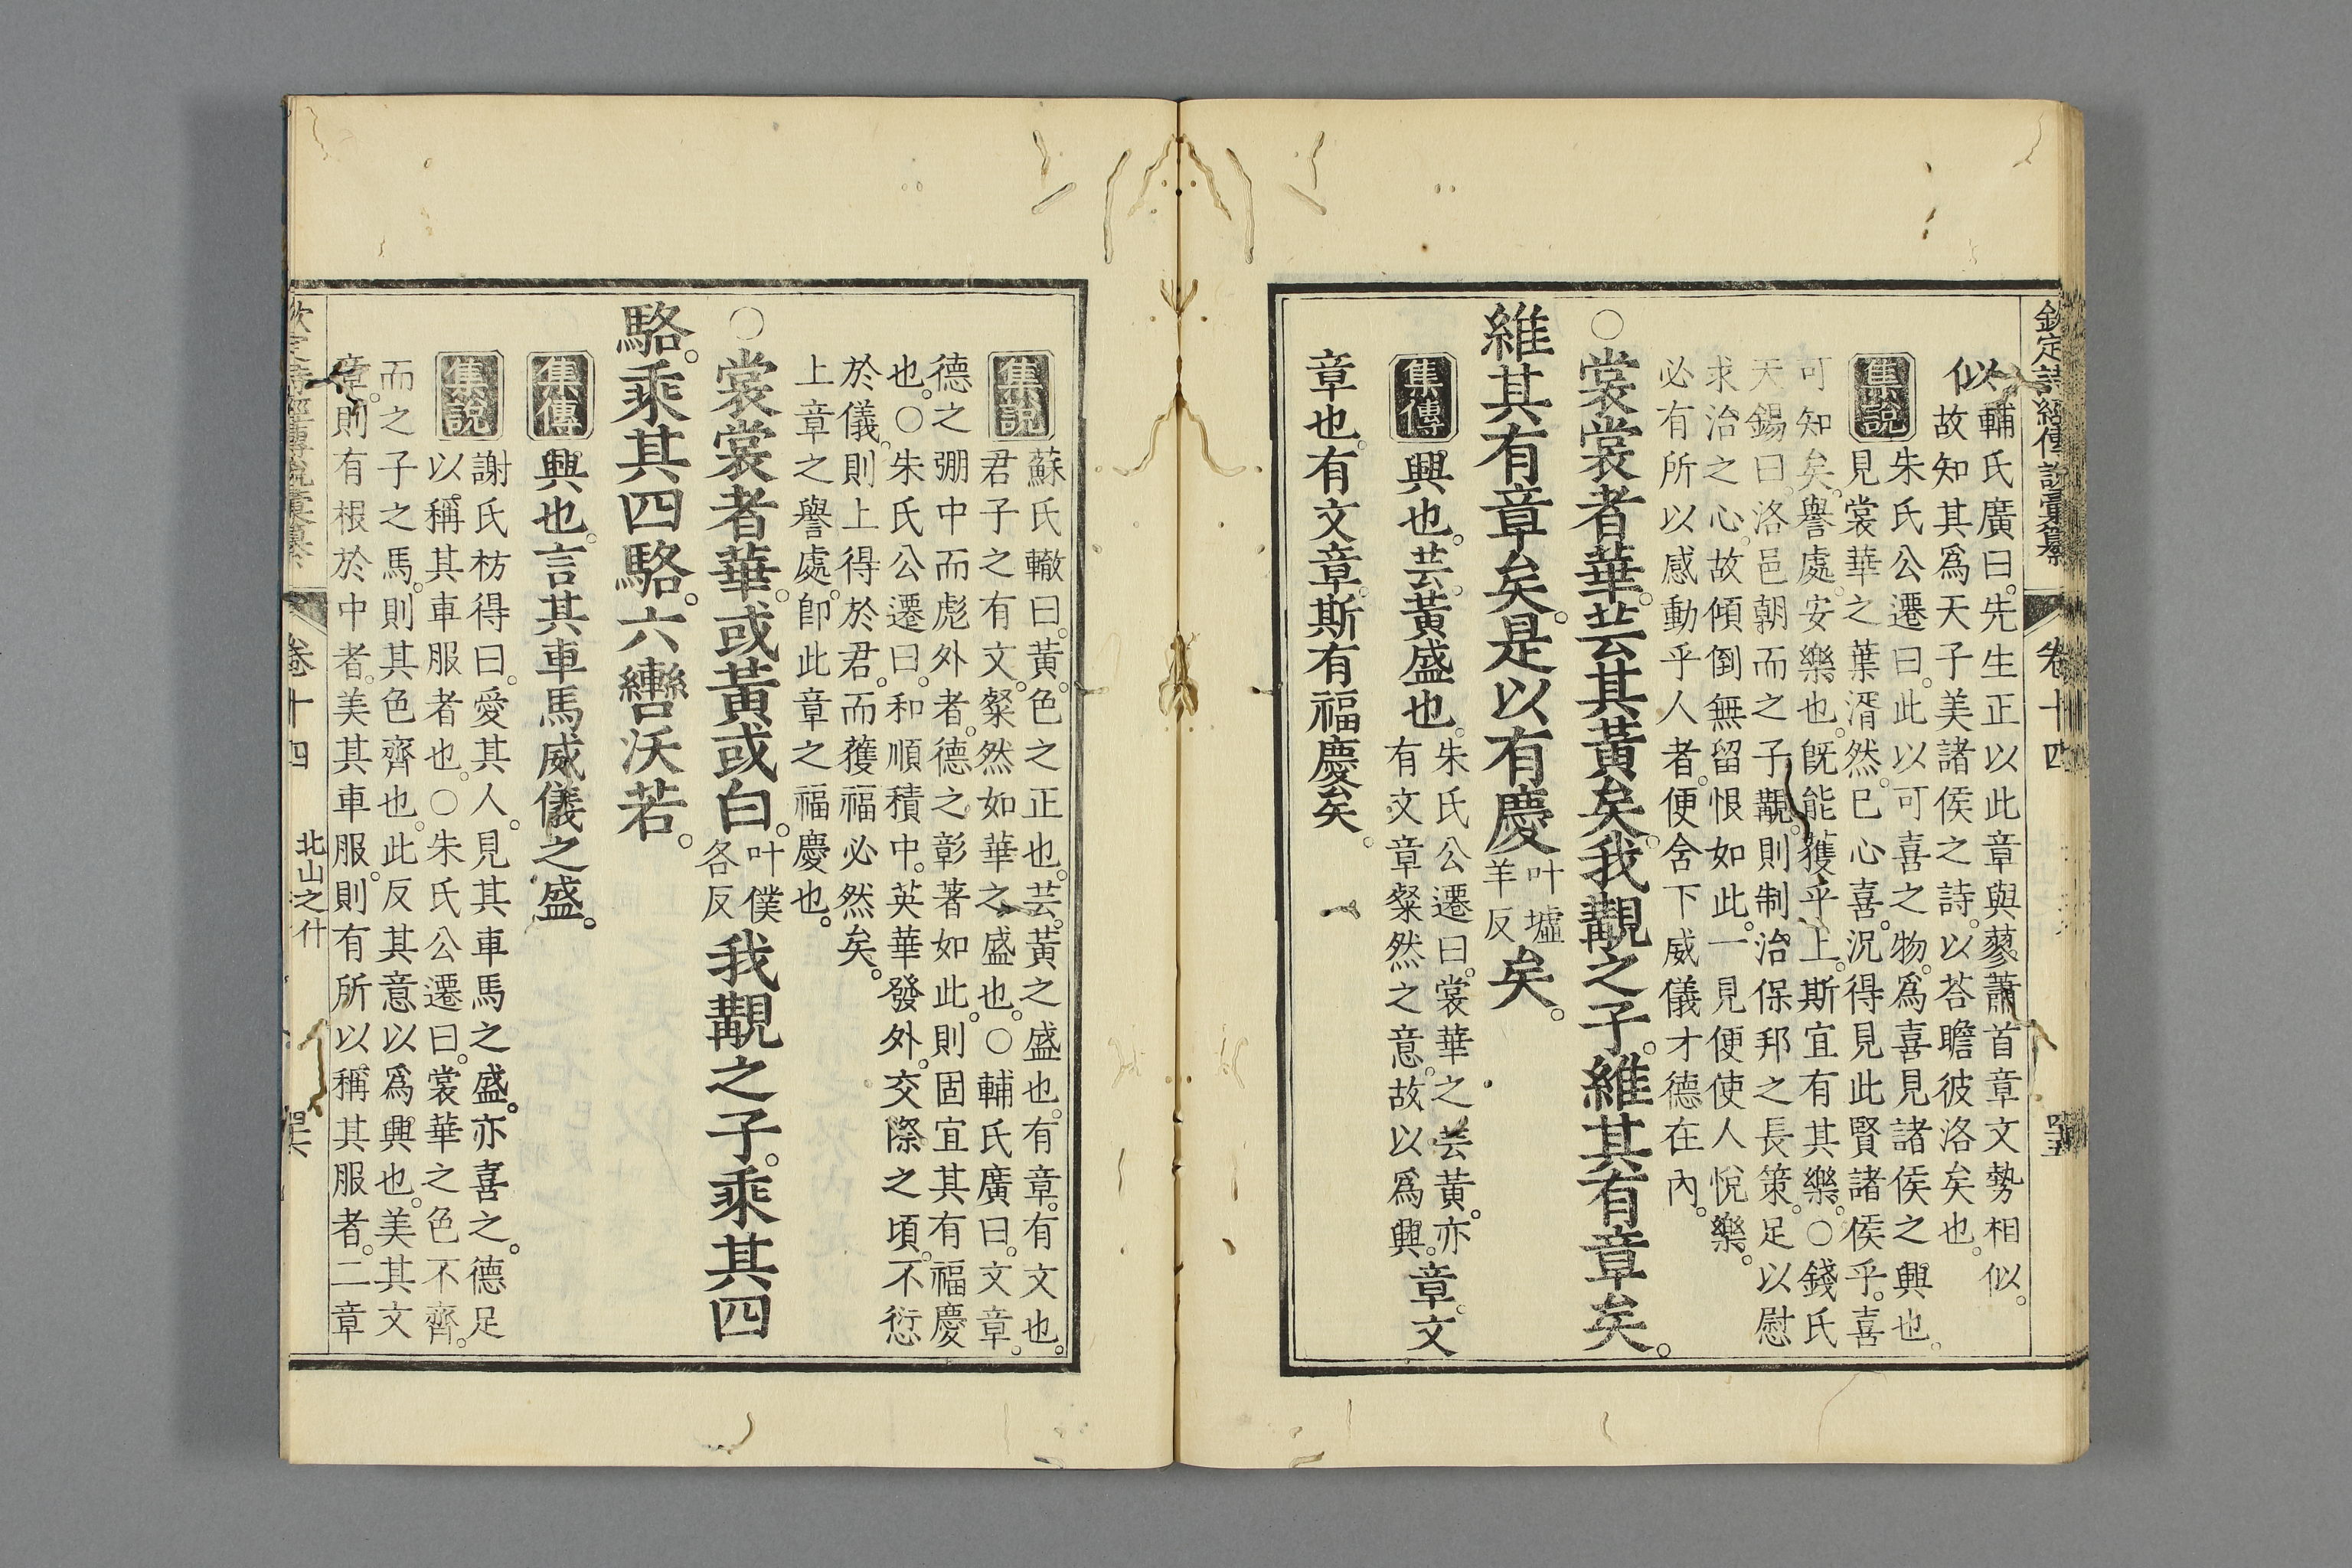 欽定詩經傳說彙纂　卷十四
似。輔氏廣曰。先生正以此章與蓼蕭首章文勢相似。
故知其爲天子美諸侯之詩。以荅瞻彼洛矣也。
集說
朱氏公遷曰。此以可喜之物。爲喜見諸侯之興也。
見裳華之葉湑然。已心喜。況得見此賢諸侯乎。喜
可知矣。譽處。安樂也。旣能獲乎上。斯宜有其樂。○錢氏
天錫曰。洛邑朝而之子覯。則制治保邦之長策。足以慰
求治之心。故傾倒無留恨如此。一見便使人悅樂。
必有所以感動乎人者。便舍下威儀才德在內。
○裳裳者華。芸其黃矣。我覯之子。維其有章矣。
維其有章矣。是以有慶叶墟羊反矣。
集傳
興也。芸。黃盛也。朱氏公遷曰。裳華之芸黃。亦
有文章粲然之意。故以爲興。章。文
章也。有文章。斯有福慶矣。
集說
蘇氏轍曰。黃。色之正也。芸。黃之盛也。有章。有文也。
君子之有文。粲然如華之盛也。○輔氏廣曰。文章。
德之弸中而彪外者。德之彰著如此。則固宜其有福慶
也。○朱氏公遷曰。和順積中。英華發外。交際之頃。不愆
於儀。則上得於君。而獲福必然矣。
上章之譽處。卽此章之福慶也。
○裳裳者華。或黃或白。叶僕各反我覯之子。乘其四
駱。乘其四駱。六轡沃若。
集傳
興也。言其車馬威儀之盛。
集說
謝氏枋得曰。愛其人。見其車馬之盛。亦喜之。德足
以稱其車服者也。○朱氏公遷曰。裳華之色不齊。
而之子之馬。則其色齊也。此反其意以爲興也。美其文
章。則有根於中者。美其車服。則有所以稱其服者。二章
卷十四　北山之什